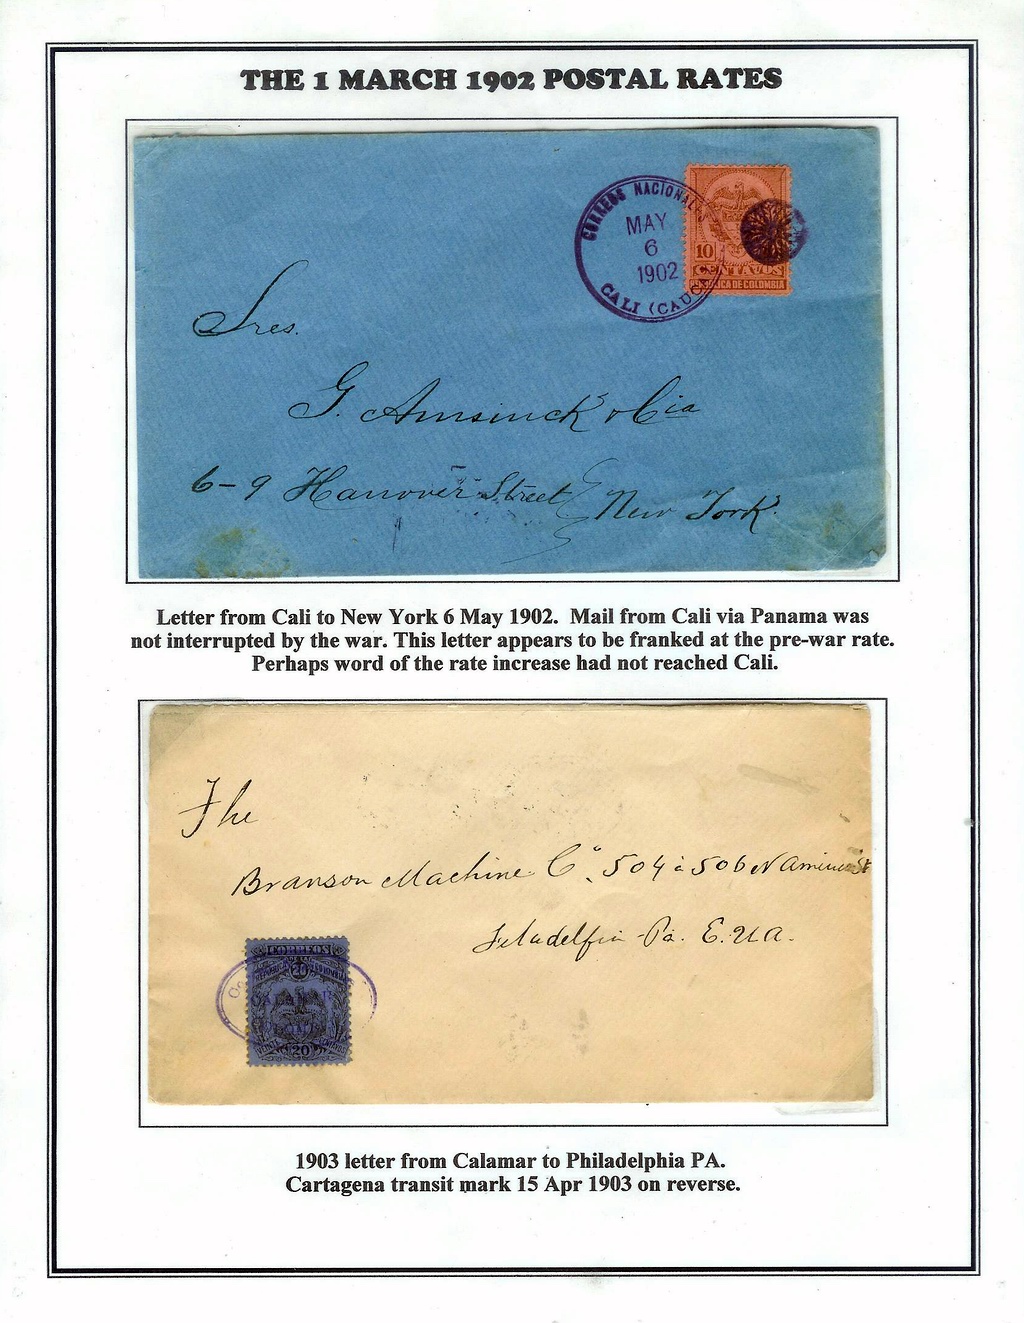 THE 1 MARCH 1902 POSTAL RATES
CORREOS NACIONALES
MAY
6
1902
CALI (CAUCA)
10
CENTAVOS
DE COLOMBIA
Sres.
G. Amsinck & Cia
6-9 Hanover Street New York.
Letter from Cali to New York 6 May 1902. Mail from Cali via Panama was
not interrupted by the war. This letter appears to be franked at the pre-war rate.
Perhaps word of the rate increase had not reached Cali.
The
Branson Machine Co. 504 à 506 N St
Filadelfia - Pa. E.U.A.
CORREOS
20
CALAMAR
20
1903 letter from Calamar to Philadelphia PA.
Cartagena transit mark 15 Apr 1903 on reverse.